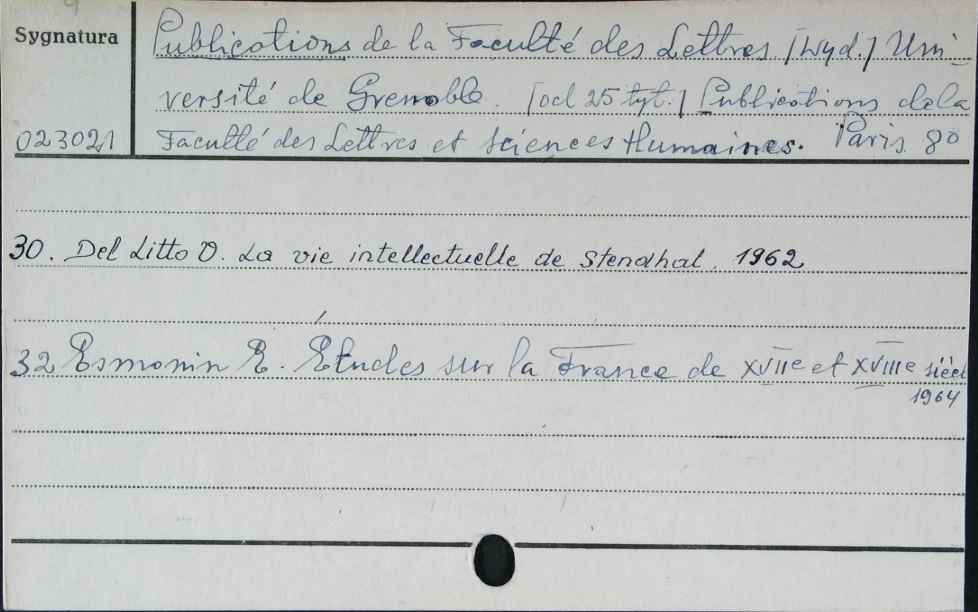 Sygnatura
Publications de la Faculté des Lettres [Wyd.] Uni-
versité de Grenoble. [od 25 tyt.] Publications de la
023021 Faculté des Lettres et Sciences Humaines. Paris 8°
30. Del Litto V. La vie intellectuelle de Stendhal. 1962
32 Esmonin E. Études sur la France de XVIIe et XVIIIe siècl
1964